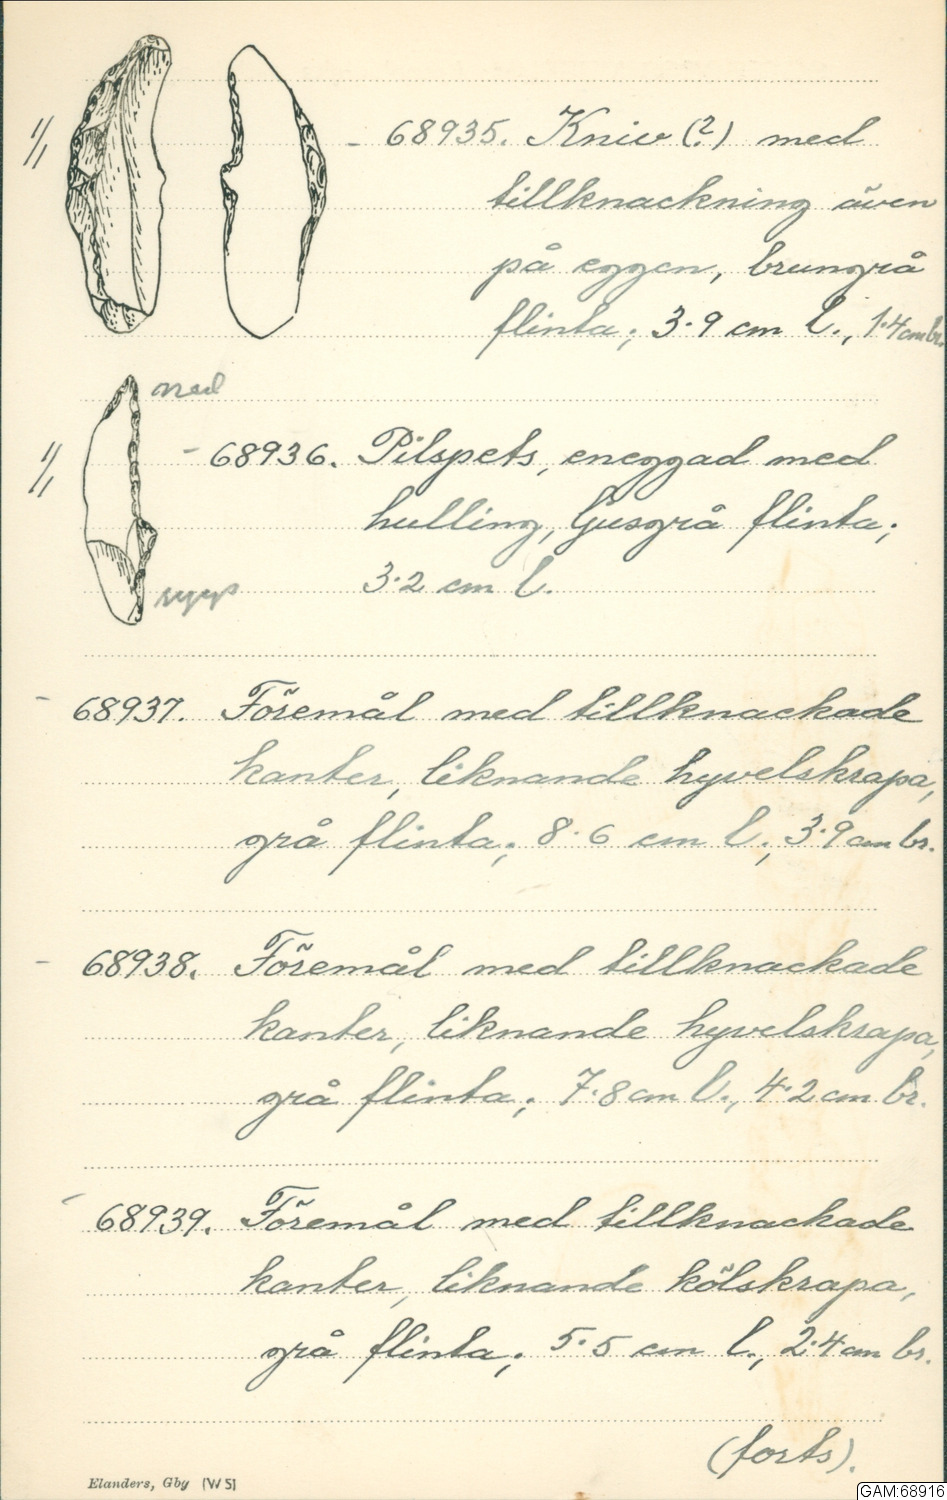 1/1
68935. Kniv (?) med
tillknackning även
på eggen, brungrå
flinta; 3·9 cm l., 1·4 cm br.
ned
1/1
68936. Pilspets, eneggad med
hulling, ljusgrå flinta;
3·2 cm l.
upp
68937. Föremål med tillknackade
kanter, liknande hyvelskrapa,
grå flinta; 8·6 cm l., 3·9 cm br.
68938. Föremål med tillknackade
kanter, liknande hyvelskrapa,
grå flinta; 7·8 cm l., 4·2 cm br.
68939. Föremål med tillknackade
kanter, liknande kölskrapa,
grå flinta; 5·5 cm l., 2·4 cm br.
(forts).
Elanders, Gby (W 5)
GAM:68916